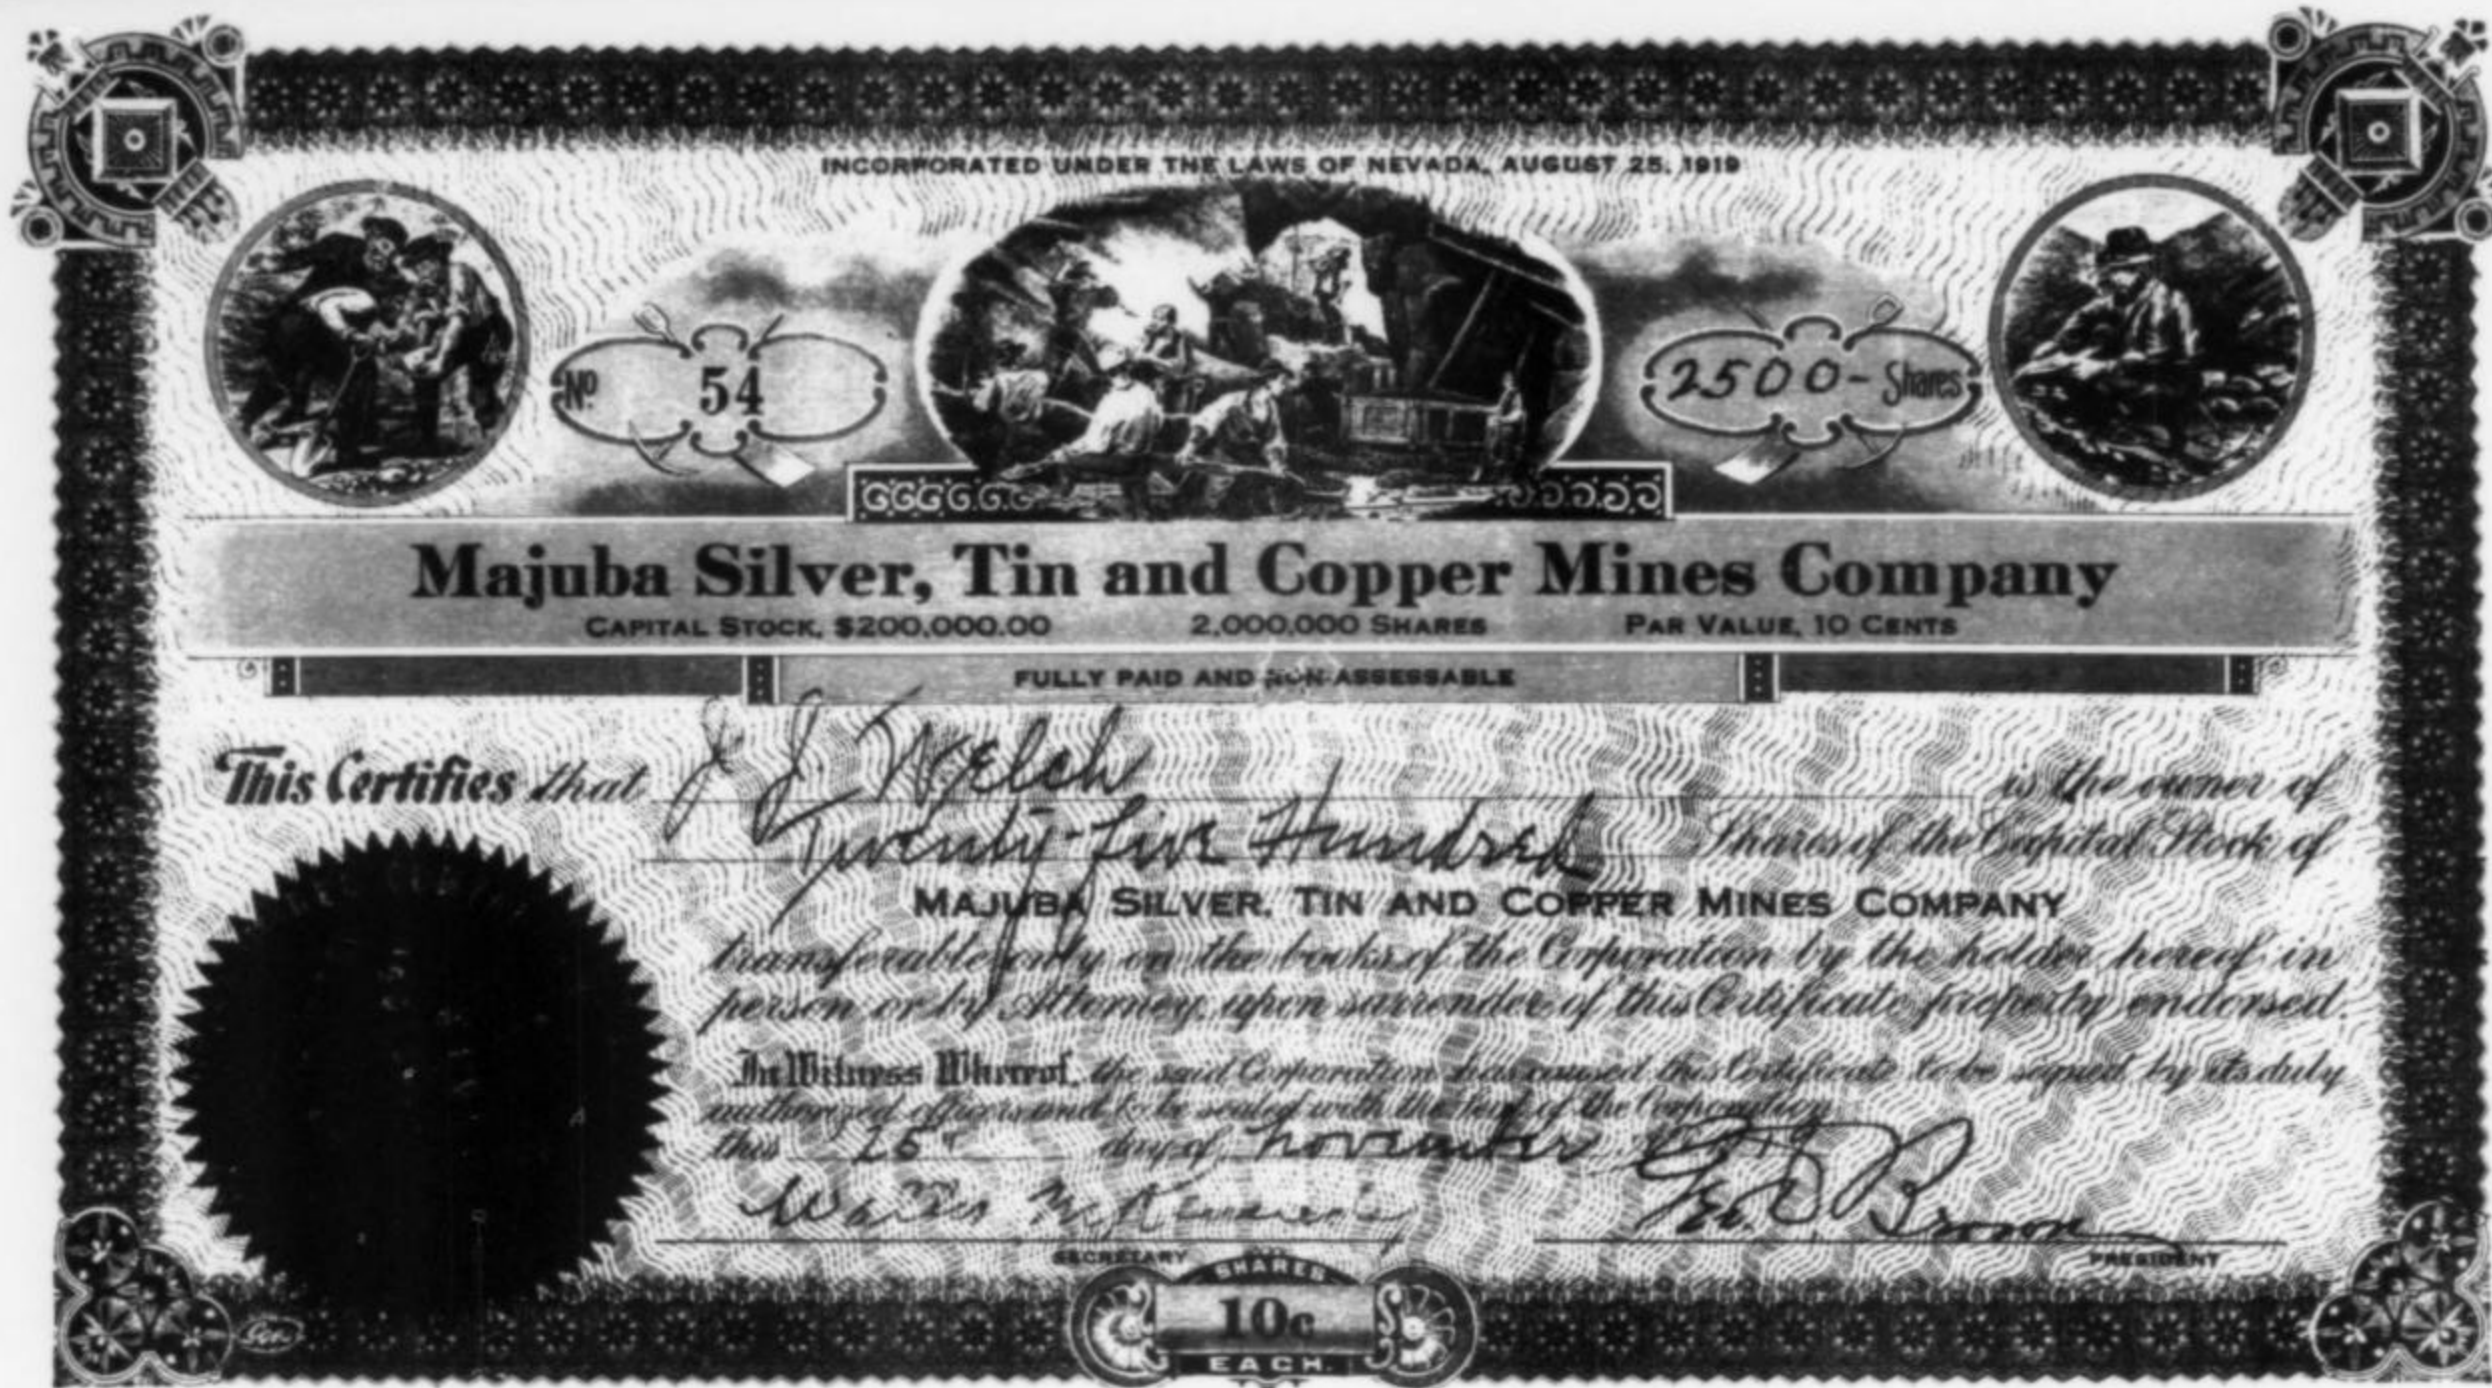 INCORPORATED UNDER THE LAWS OF NEVADA, AUGUST 25, 1919
No. 54
2500- Shares
Majuba Silver, Tin and Copper Mines Company
CAPITAL STOCK, $200,000.00 2,000,000 SHARES PAR VALUE, 10 CENTS
FULLY PAID AND NON-ASSESSABLE
This Certifies that J J Welch is the owner of
Twenty-five Hundred Shares of the Capital Stock of
MAJUBA SILVER, TIN AND COPPER MINES COMPANY
transferable only on the books of the Corporation by the holder hereof in
person or by Attorney, upon surrender of this Certificate properly endorsed.
In Witness Whereof, the said Corporation has caused this Certificate to be signed by its duly
authorized officers and to be sealed with the Seal of the Corporation
this day of November
Geo. D. Brown
SECRETARY PRESIDENT
SHARES
10c
EACH.